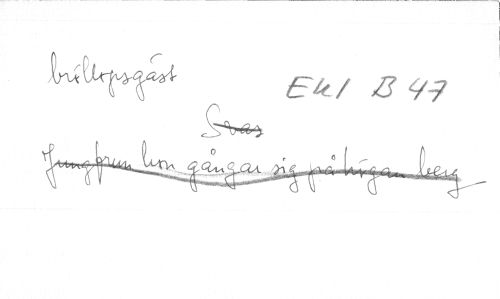 bröllopsgäst
EKl B 47
Svar
Jungfrun hon gångar sig på högan berg